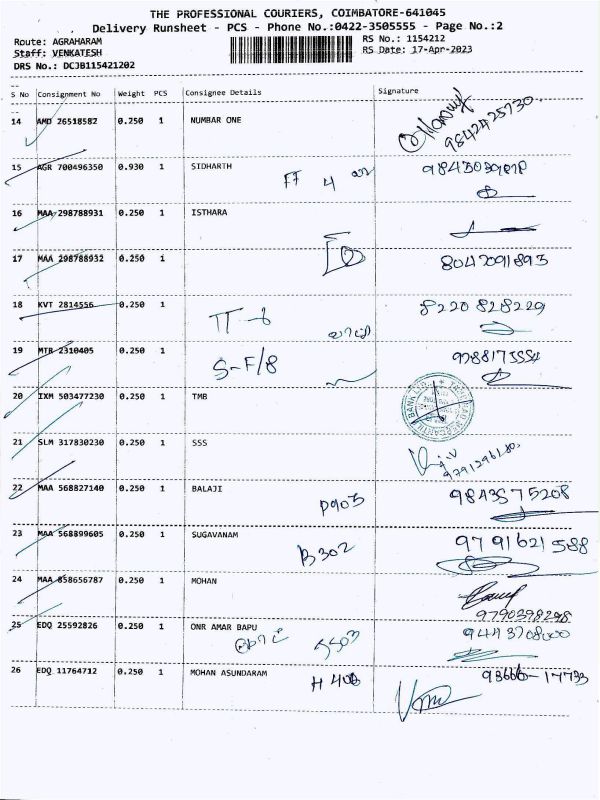 THE PROFESSIONAL COURIERS, COIMBATORE-641045
Delivery Runsheet - PCS - Phone No.:0422-3505555 - Page No.:2
Route: AGRAHARAM RS No.: 1154212
Staff: VENKATESH RS Date: 17-Apr-2023
DRS No.: DCJB115421202
S No Consignment No Weight PCS Consignee Details Signature
14 AMD 26518582 0.250 1 NUMBAR ONE
9842425730
15 AGR 700496350 0.930 1 SIDHARTH
FF 4
16 MAA 298788931 0.250 1 ISTHARA
17 MAA 298788932 0.250 1 8042091895
18 KVT 2814556 0.250 1 8220828229
19 MTR 2310405 0.250 1 S-F/8
20 IXM 503477230 0.250 1 TMB
21 SLM 317830230 0.250 1 SSS
22 MAA 568827140 0.250 1 BALAJI 9843575208
P903
23 MAA 568899605 0.250 1 SUGAVANAM 9791621588
B302
24 MAA 858656787 0.250 1 MOHAN
9790398298
25 EDQ 25592826 0.250 1 ONR AMAR BAPU
26 EDQ 11764712 0.250 1 MOHAN ASUNDARAM 93666-17733